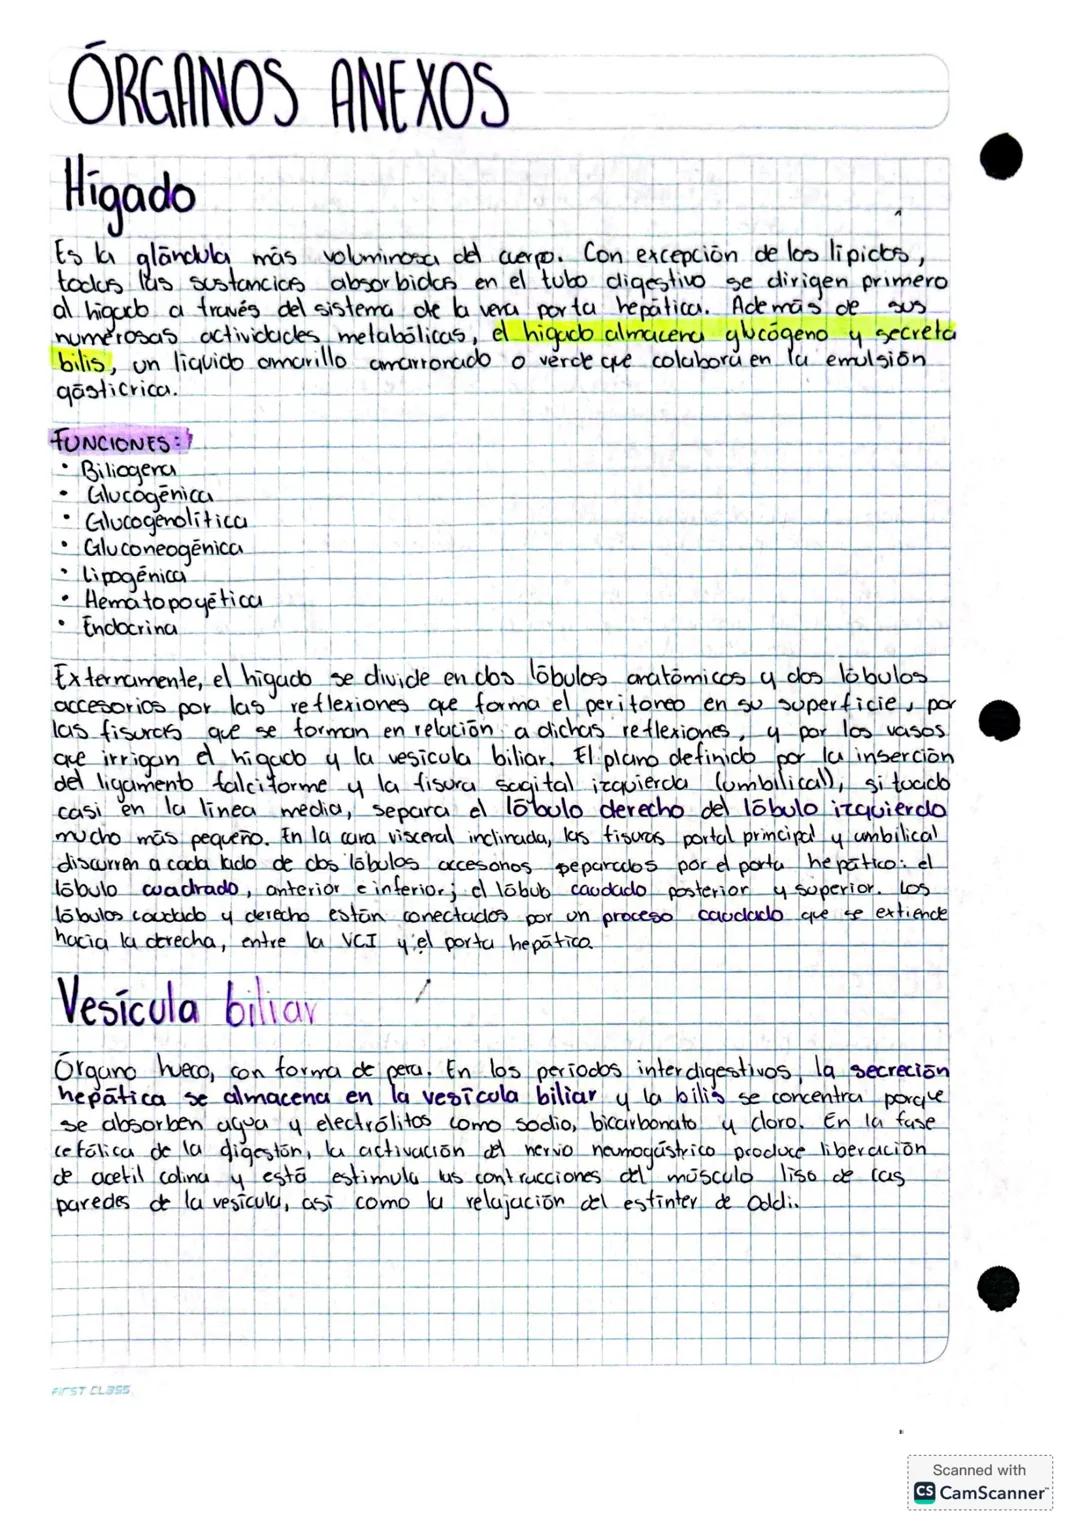 ÓRGANOS ANEXOS
Hígado
Es la glándula más voluminosa del cuerpo. Con excepción de los lípidos,
todas las sustancias absorbidas en el tubo digestivo se dirigen primero
al hígado a través del sistema de la vena porta hepática. Además de sus
numerosas actividades metabólicas, el hígado almacena glucógeno y secreta
bilis, un líquido amarillo amarronado o verde que colabora en la emulsión
gásticrica.
FUNCIONES:
• Biliogena
• Glucogénica
• Glucogenolítica
• Gluconeogénica
• Lipogénica
• Hematopoyética
• Endocrina
Externamente, el hígado se divide en dos lóbulos anatómicos y dos lóbulos
accesorios por las reflexiones que forma el peritoneo en su superficie, por
las fisuras que se forman en relación a dichas reflexiones, y por los vasos
que irrigan el hígado y la vesícula biliar. El plano definido por la inserción
del ligamento falciforme y la fisura sagital izquierda (umbilical), situado
casi en la línea media, separa el lóbulo derecho del lóbulo izquierdo
mucho más pequeño. En la cara visceral inclinada, las fisuras portal principal y umbilical
discurren a cada lado de dos lóbulos accesorios separados por el porta hepático: el
lóbulo cuadrado, anterior e inferior; el lóbulo caudado posterior y superior. Los
lóbulos caudado y derecho están conectados por un proceso caudado que se extiende
hacia la derecha, entre la VCI y el porta hepático.
Vesícula biliar
Órgano hueco, con forma de pera. En los periodos interdigestivos, la secreción
hepática se almacena en la vesícula biliar y la bilis se concentra porque
se absorben agua y electrólitos como sodio, bicarbonato y cloro. En la fase
cefálica de la digestón, la activación del nervio neumogástrico produce liberación
de acetil colina y está estimula las contracciones del músculo liso de las
paredes de la vesícula, así como la relajación del esfínter de Oddi.
FIRST CLASS
Scanned with
CS CamScanner